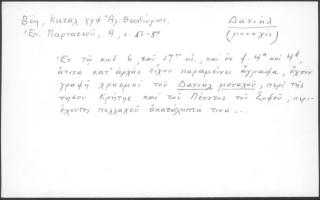 Βέη, Καταλ χγφ Ἁγ. Θεοδώρων.
Δανιήλ
Ἐπ. Παρνασσοῦ, 9, σ. 51-59
(μοναχός)
Ἐν τῷ κωδ 6, τοῦ 17ου αἰ., καὶ ἐν φ. 4α καὶ 4β,
ἅτινα κατ' ἀρχὰς εἶχον παραμείνει ἄγραφα, ἔχουν
γραφῆ χρησμοὶ τοῦ Δανιὴλ μοναχοῦ, περὶ τῆς
νήσου Κρήτης καὶ τοῦ Λέοντος τοῦ Σοφοῦ, περι-
έχοντες πολλαχοῦ ἀκατάληπτά τινα ...